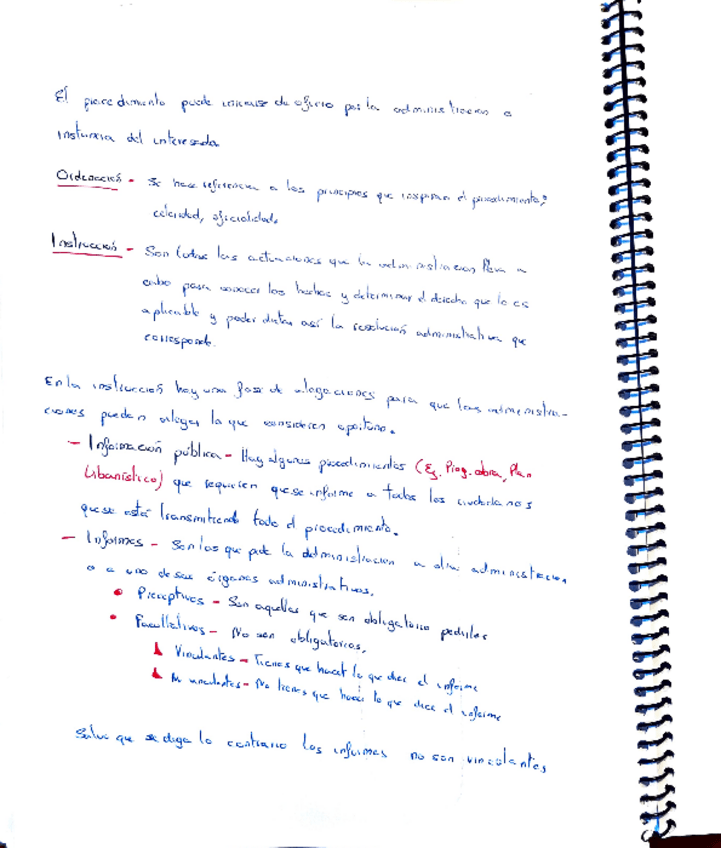 El procedimiento puede iniciarse de oficio por la administración o
instancia del interesado
Ordenación - Se hace referencia a los principios que inspiran el procedimiento;
celeridad, oficialidad.
Instrucción - Son todas las actuaciones que la administración lleva a
cabo para conocer los hechos y determinar el derecho que le es
aplicable y poder dictar así la resolución administrativa que
corresponde.
En la instrucción hay una fase de alegaciones para que las administra-
ciones pueden alegar lo que consideren oportuno.
- Información pública - Hay algunos procedimientos (Ej. Proy. obra, Plan
Urbanístico) que requieren que se informe a todos los ciudadanos
que se está transmitiendo todo el procedimiento.
- Informes - Son los que pide la administración a otra administración
o a uno de sus órganos administrativos.
• Preceptivos - Son aquellos que son obligatorio pedirlos
• Facultativos - No son obligatorios.
Vinculantes - Tienes que hacer lo que dice el informe
No vinculantes - No tienes que hacer lo que dice el informe
Salvo que se diga lo contrario los informes no son vinculantes